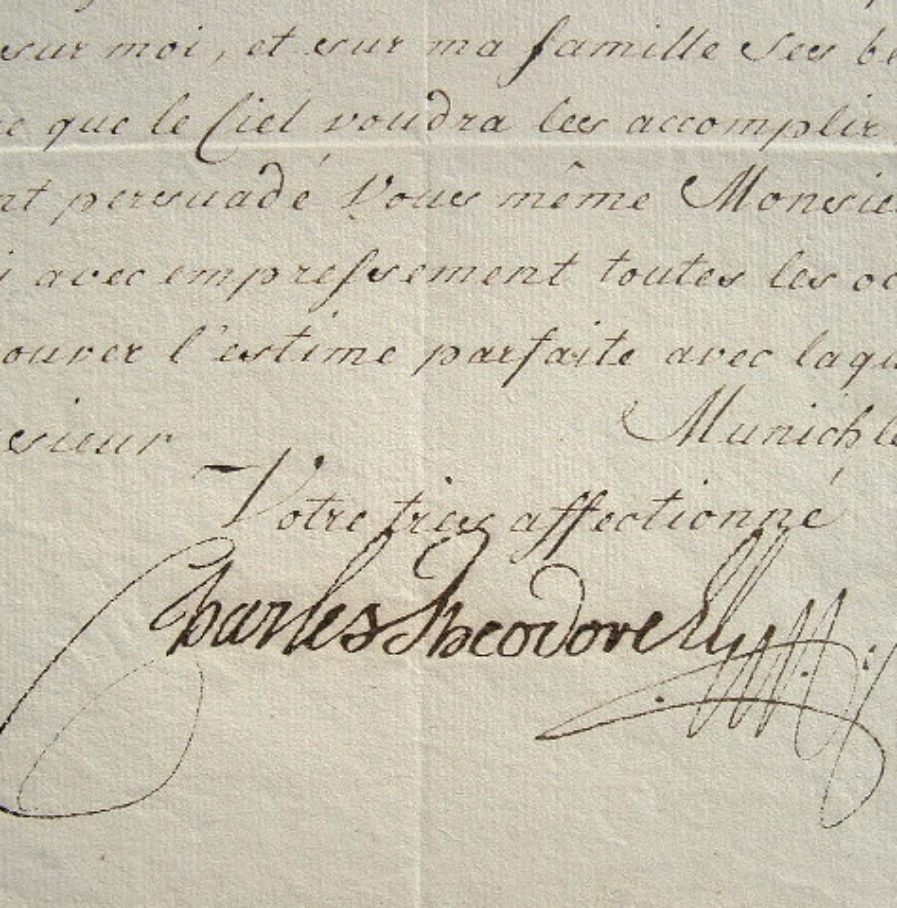 sur moi, et sur ma famille Ses
que le Ciel voudra les accomplir
persuadé Vous même
avec empressement toutes les
l'estime parfaite avec
Munich
Votre tres affectionné
Charles Theodore